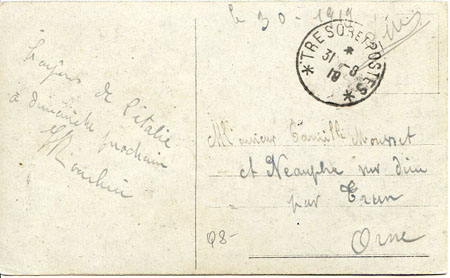 le 30 - 1919
* TRESOR ET POSTES *
31 - 8
19
de l'Italie
à dimanche prochain
Monsieur Camille Mousset
et Neauphe sur dive
par Trun
Orne
98-